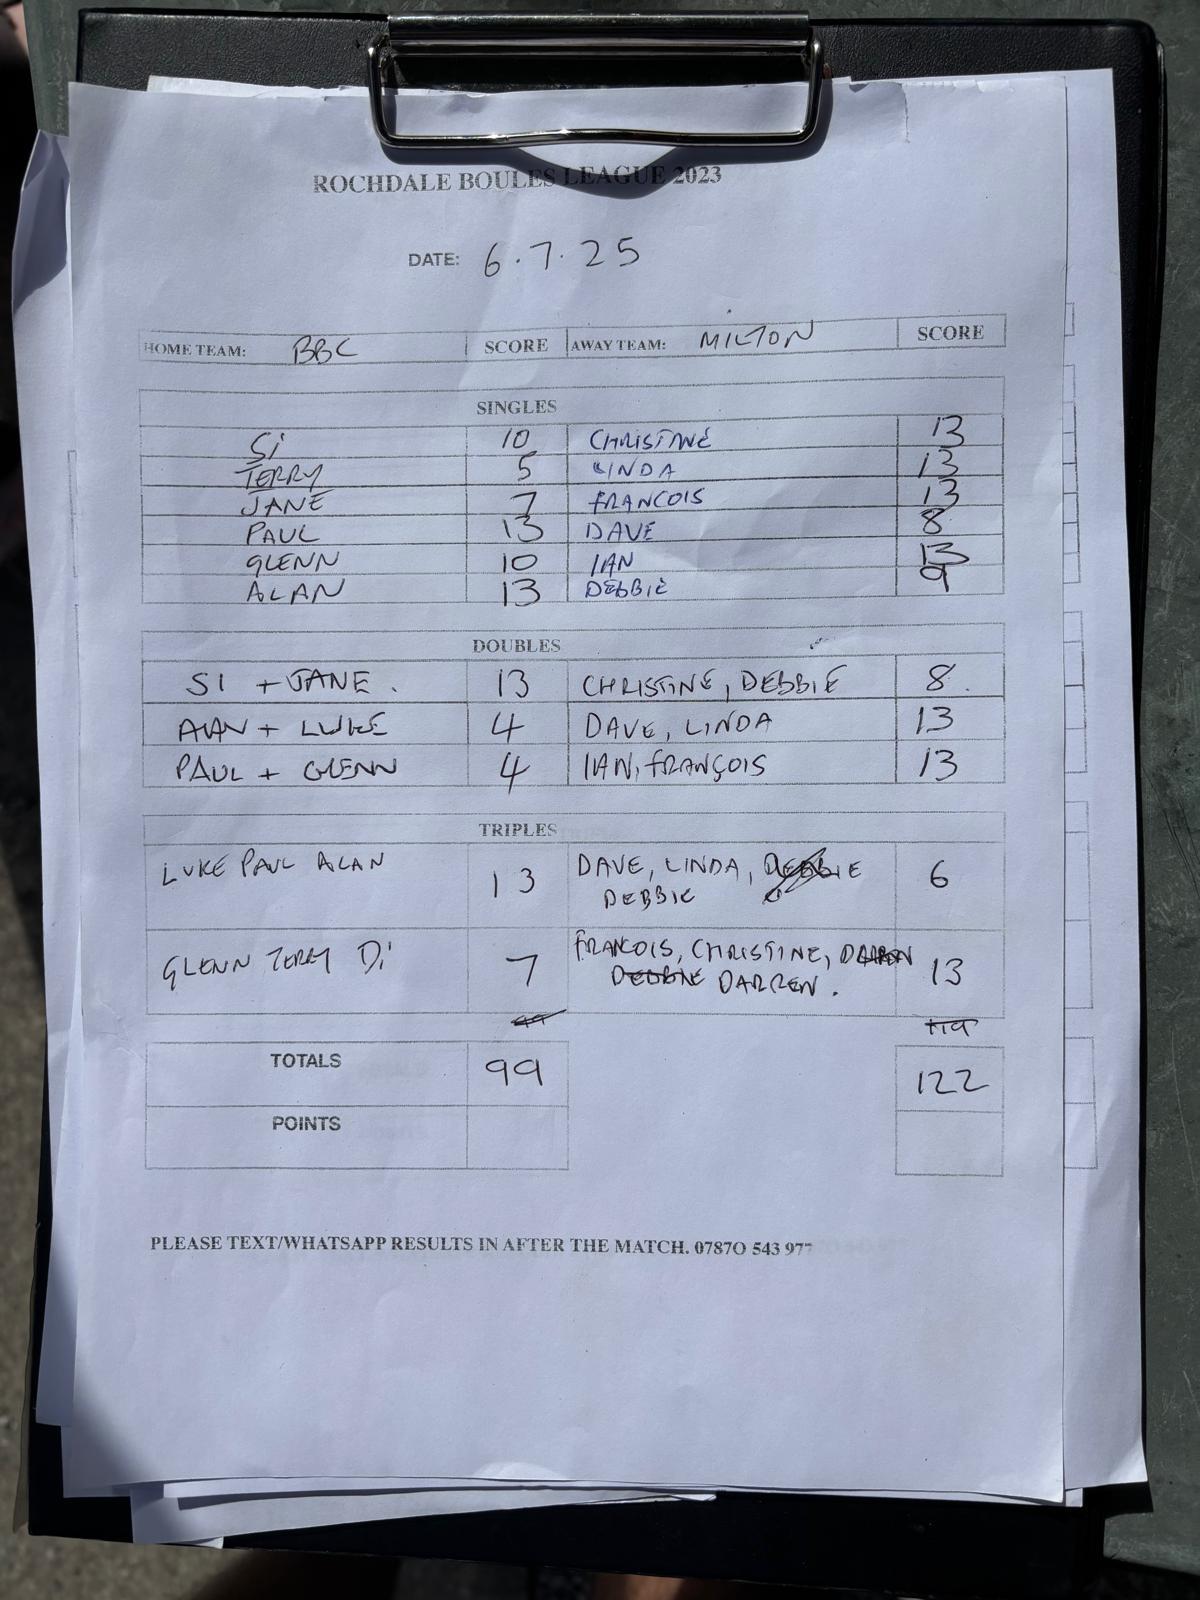 ROCHDALE BOULES LEAGUE 2023
DATE: 6.7.25
HOME TEAM: BBC SCORE AWAY TEAM: MILTON SCORE
SINGLES
Si 10 CHRISTINE 13
TERRY 5 LINDA 13
JANE 7 FRANCOIS 13
PAUL 13 DAVE 8
GLENN 10 IAN 13
ALAN 13 DEBBIE 9
DOUBLES
SI + JANE. 13 CHRISTINE, DEBBIE 8.
ALAN + LUKE 4 DAVE, LINDA 13
PAUL + GLENN 4 IAN, FRANÇOIS 13
TRIPLES
LUKE PAUL ALAN 13 DAVE, LINDA, DEBBIE 6
DEBBIE
GLENN TERRY Di 7 FRANCOIS, CHRISTINE, 13
DEBBIE DARREN.
99 119
TOTALS 99 122
POINTS
PLEASE TEXT/WHATSAPP RESULTS IN AFTER THE MATCH. 0787O 543 977